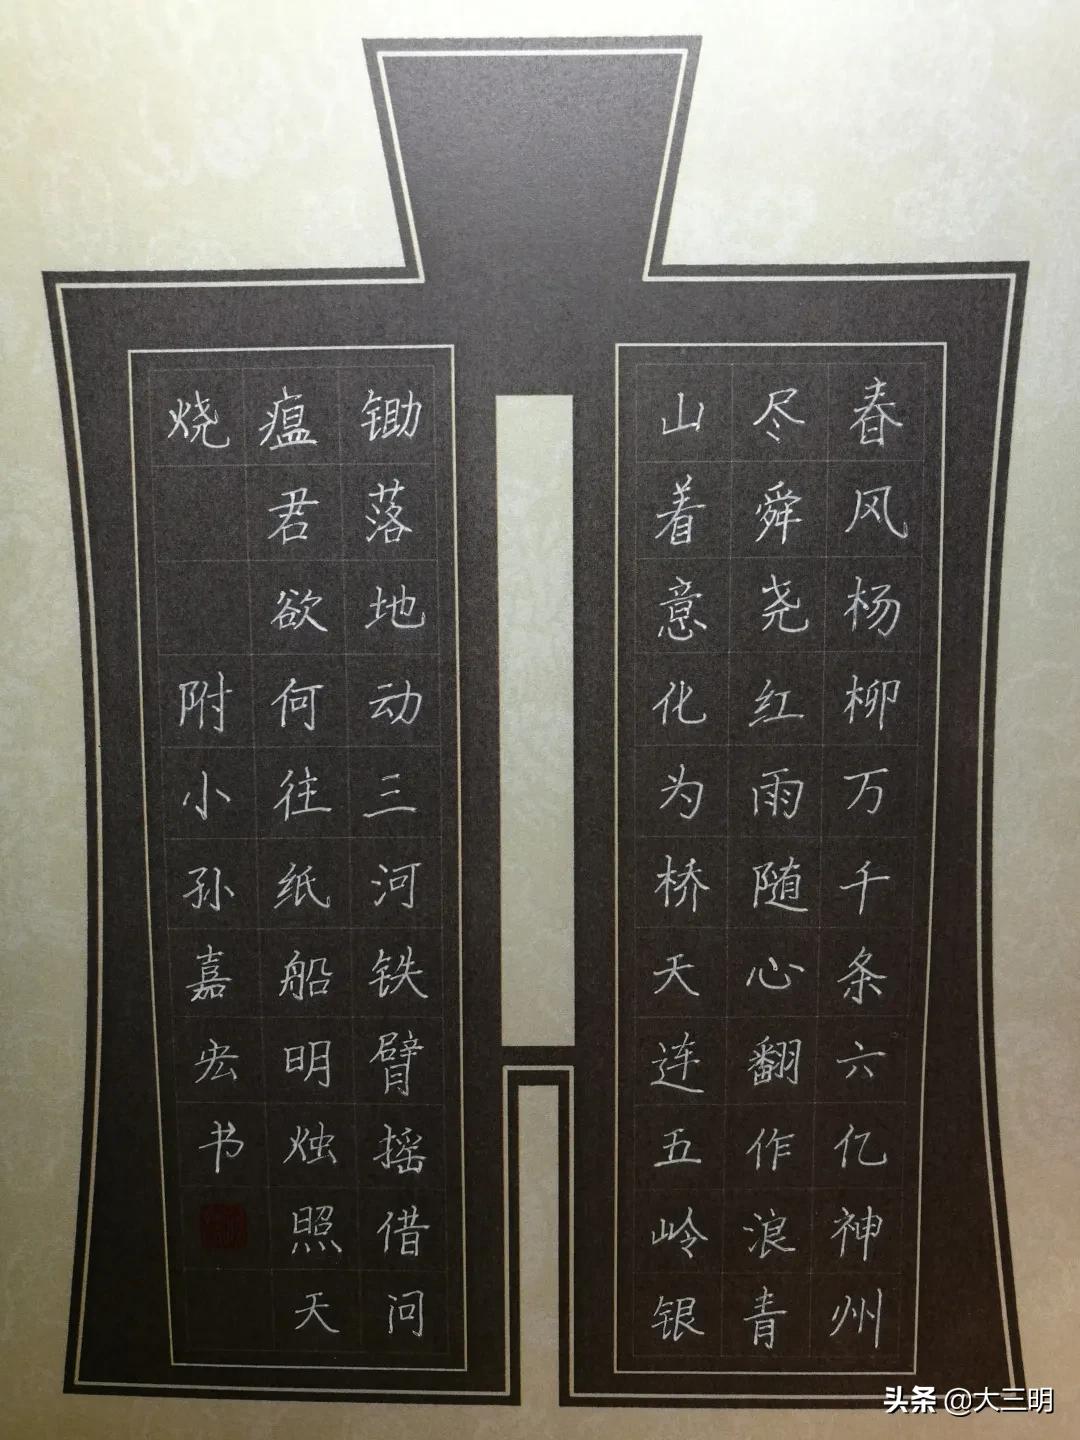 春风杨柳万千条六亿神州
尽舜尧红雨随心翻作浪青
山着意化为桥天连五岭银
锄落地动三河铁臂摇借问
瘟君欲何往纸船明烛照天
烧
附小孙嘉宏书
头条 @大三明